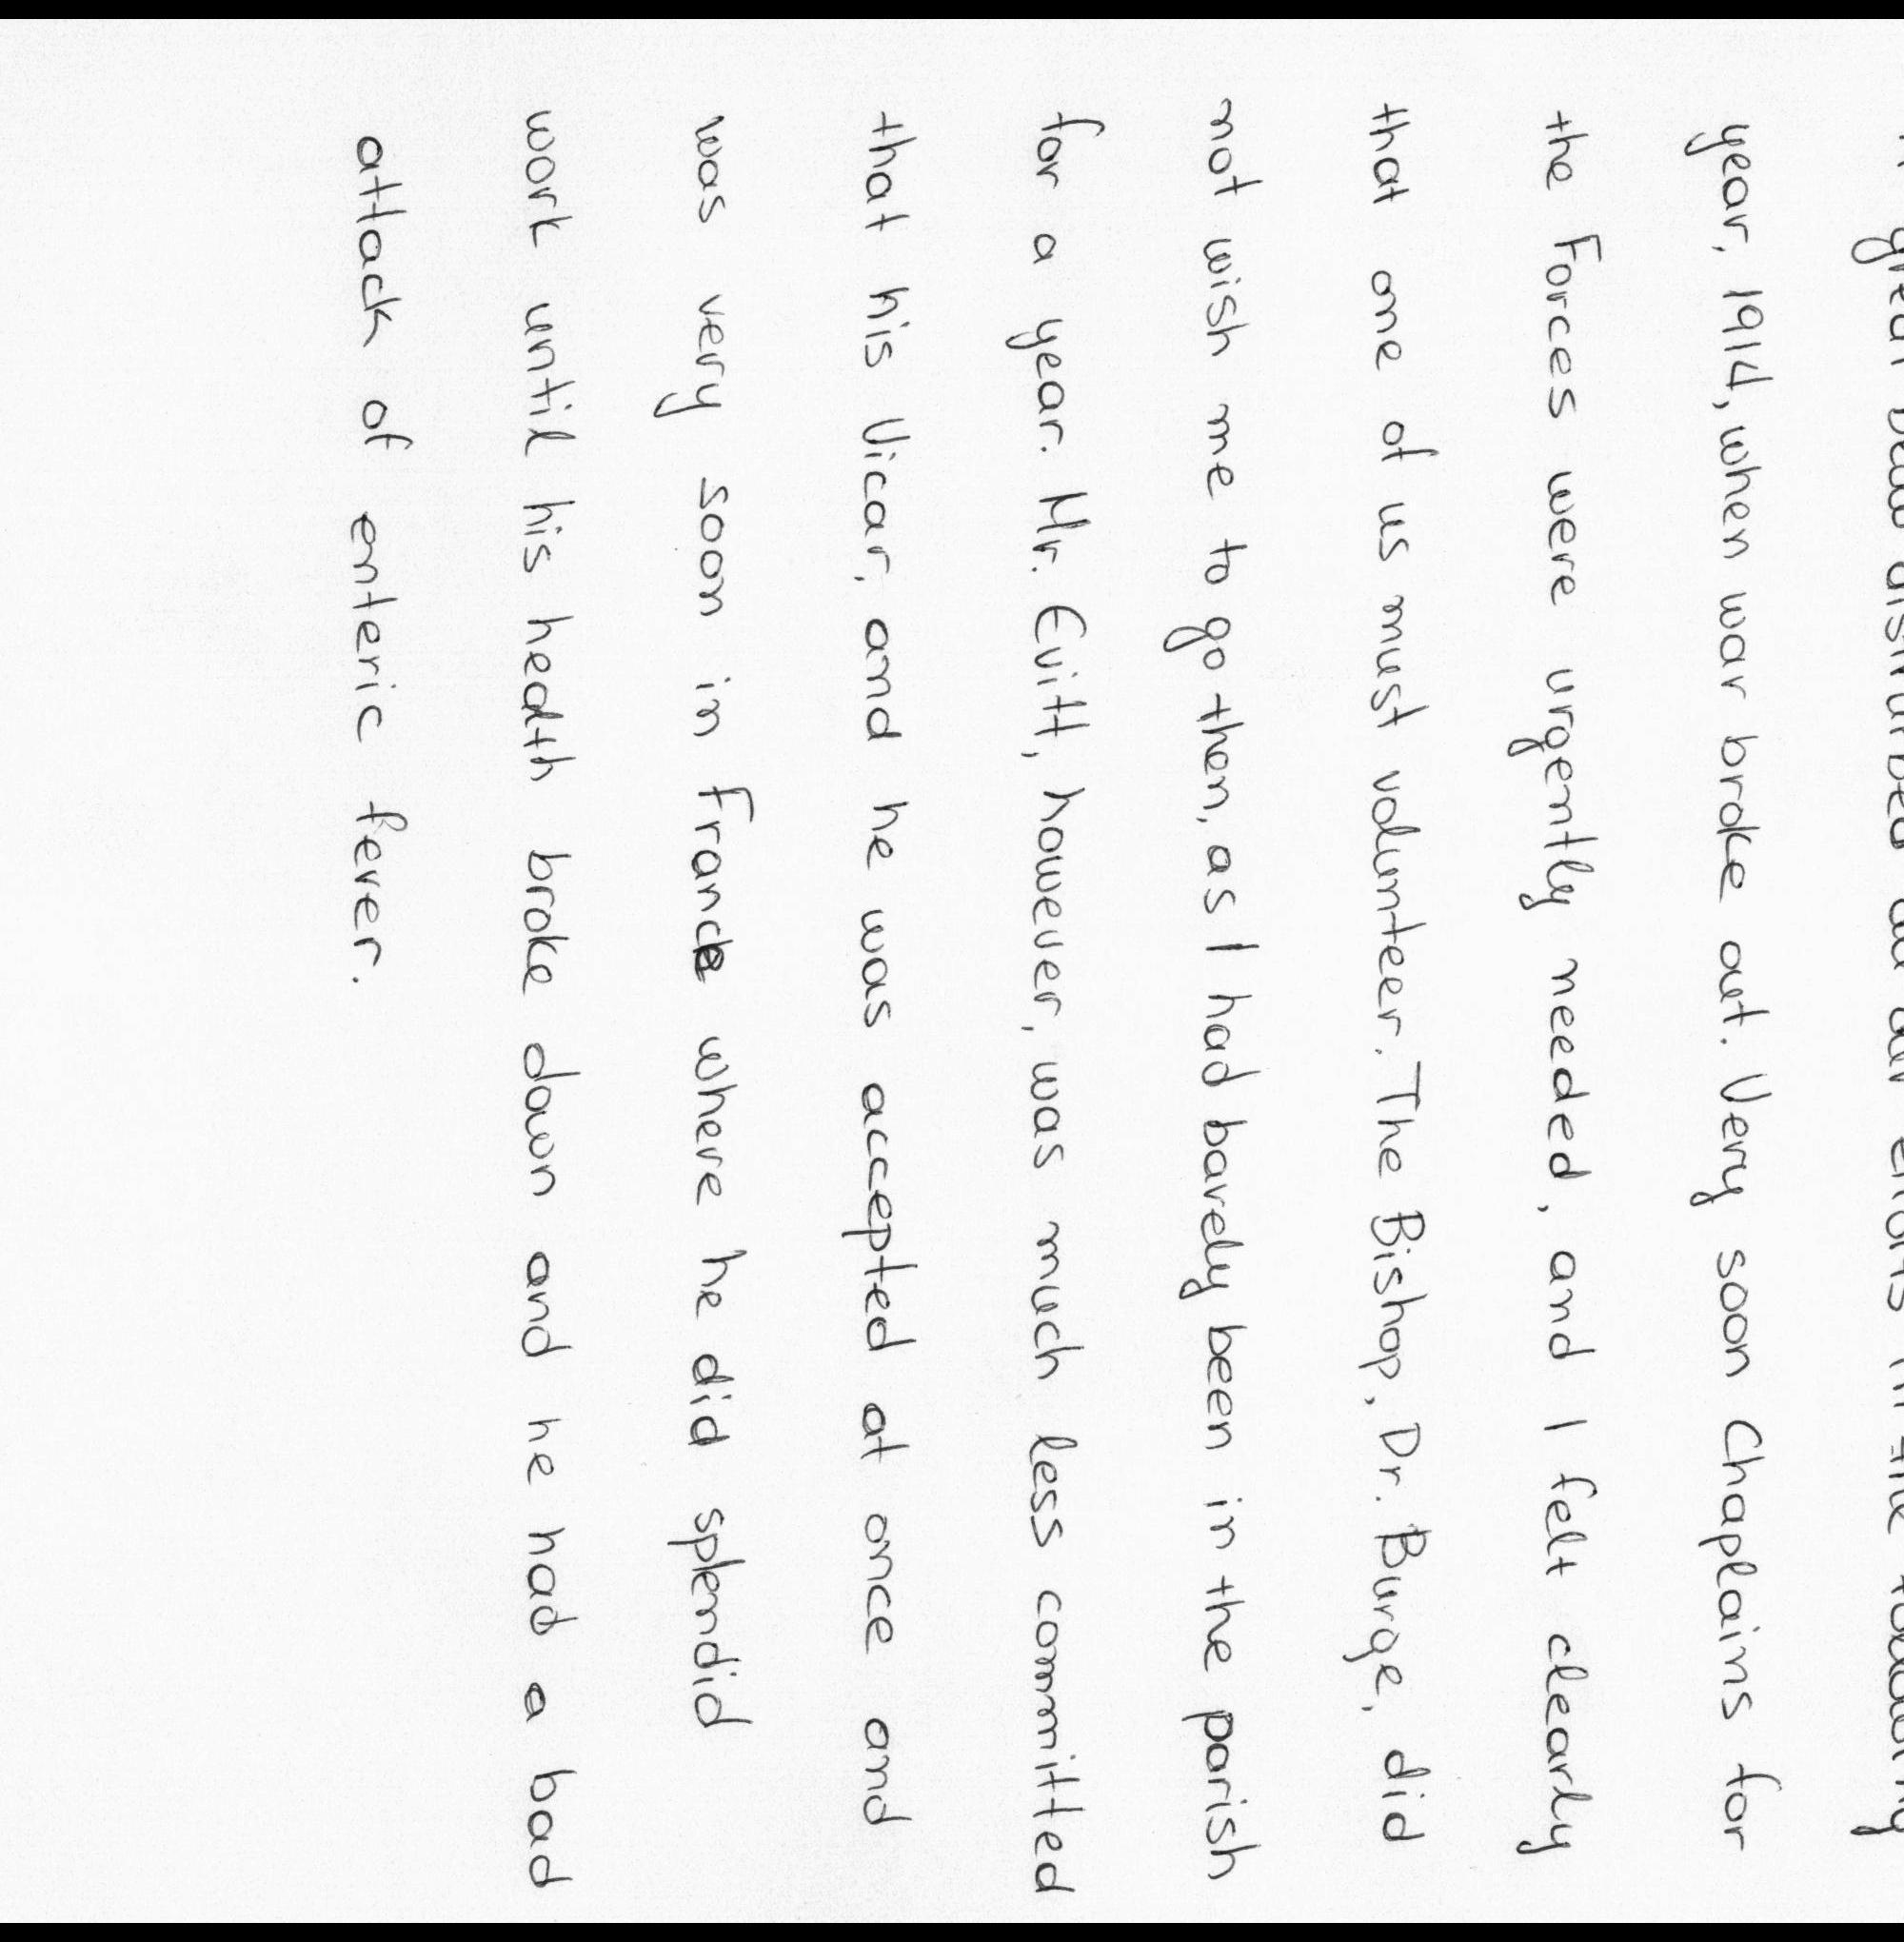 A great blow disturbed all our efforts in the following
year, 1914, when war broke out. Very soon Chaplains for
the Forces were urgently needed, and I felt clearly
that one of us must volunteer. The Bishop, Dr. Burge, did
not wish me to go then, as I had barely been in the parish
for a year. Mr. Evitt, however, was much less committed
that his Vicar, and he was accepted at once and
was very soon in France where he did splendid
work until his health broke down and he had a bad
attack of enteric fever.